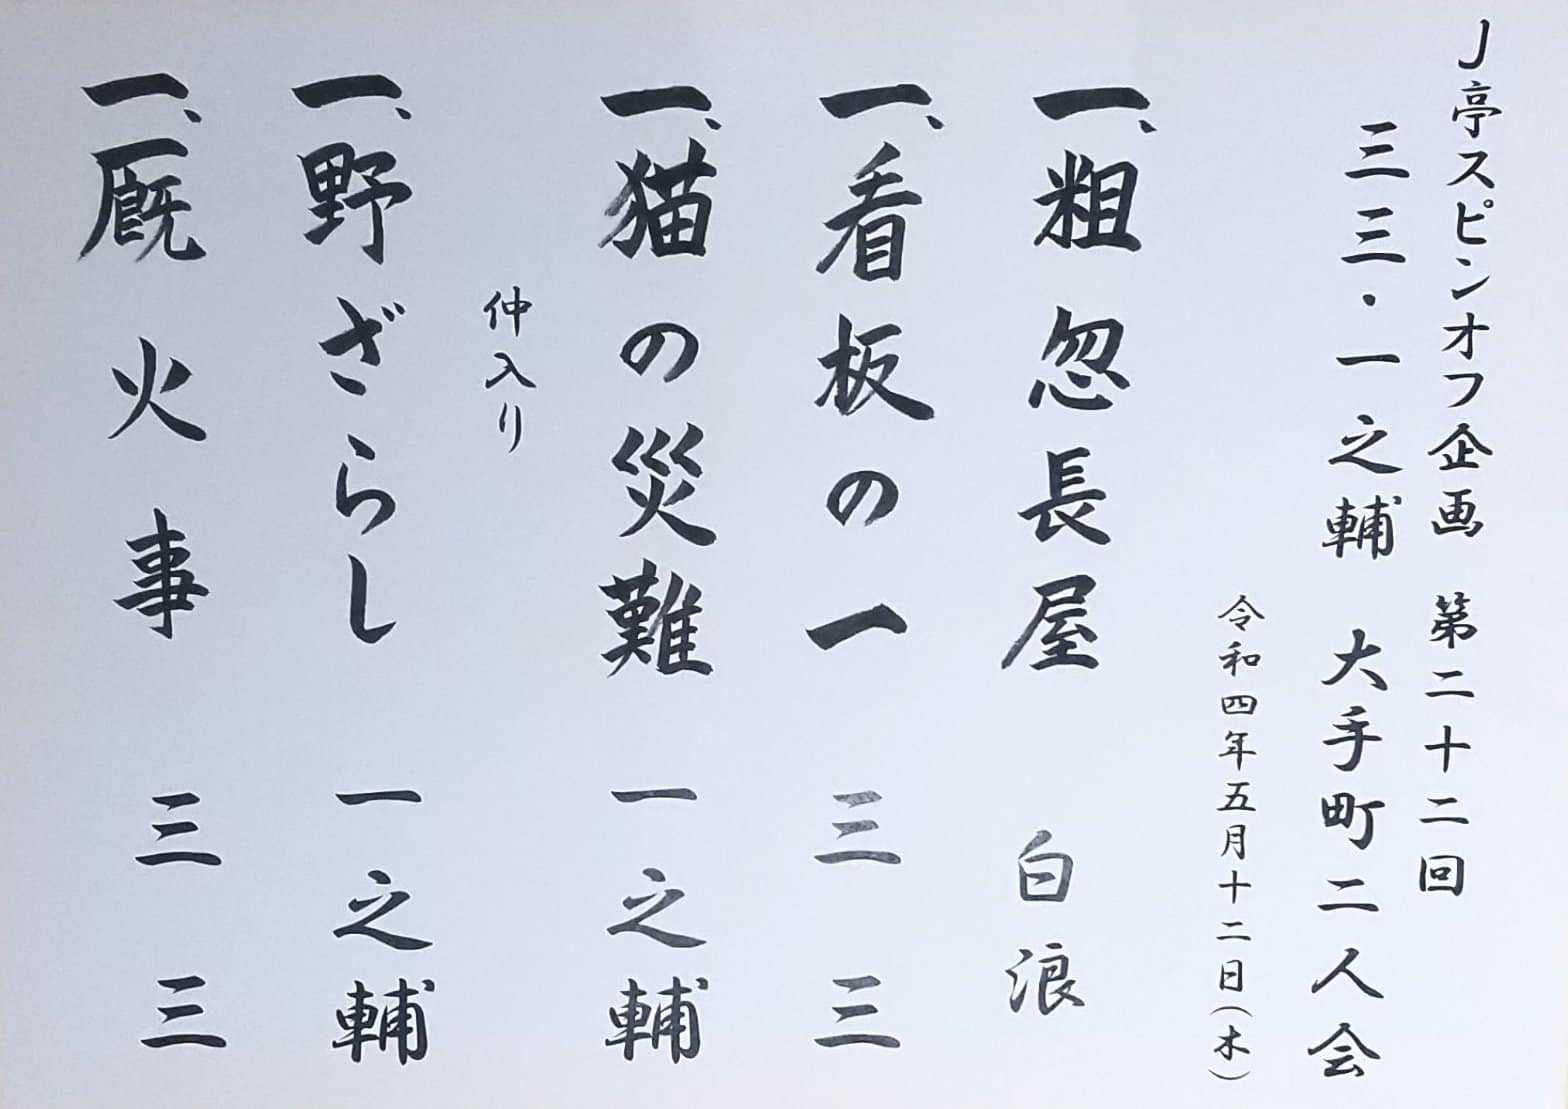 J亭スピンオフ企画 第二十二回
三三・一之輔 大手町二人会
令和四年五月十二日(木)
一、粗忽長屋 白浪
一、看板の一 三三
一、猫の災難 一之輔
仲入り
一、野ざらし 一之輔
一、厩火事 三三